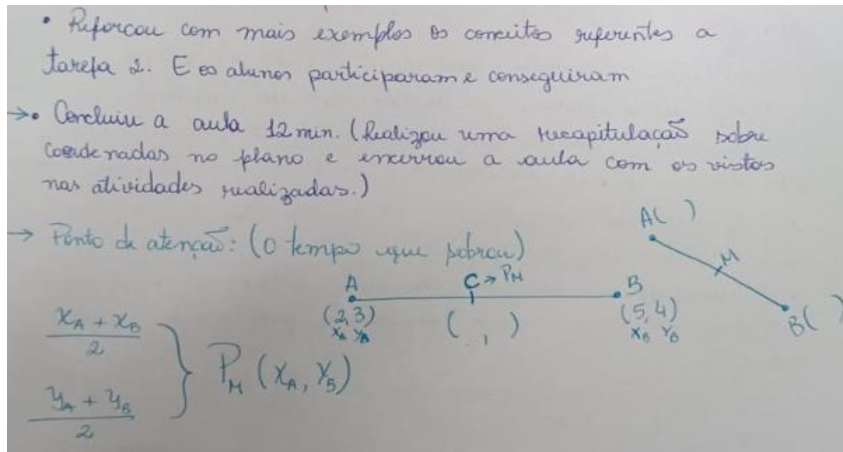 • Reforçou com mais exemplos os conceitos referentes a
tarefa 2. E os alunos participaram e conseguiram
→• Concluiu a aula 12 min. (Realizou uma recapitulação sobre
coordenadas no plano e encerrou a aula com os vistos
nas atividades realizadas.)
→ Ponto de atenção: (O tempo que sobrou)
A( )
M
B( )
A C→PM B
(2,3) ( , ) (5,4)
XA YA XB YB
XA + XB
2
yA + yB
2
PM (XA, YB)